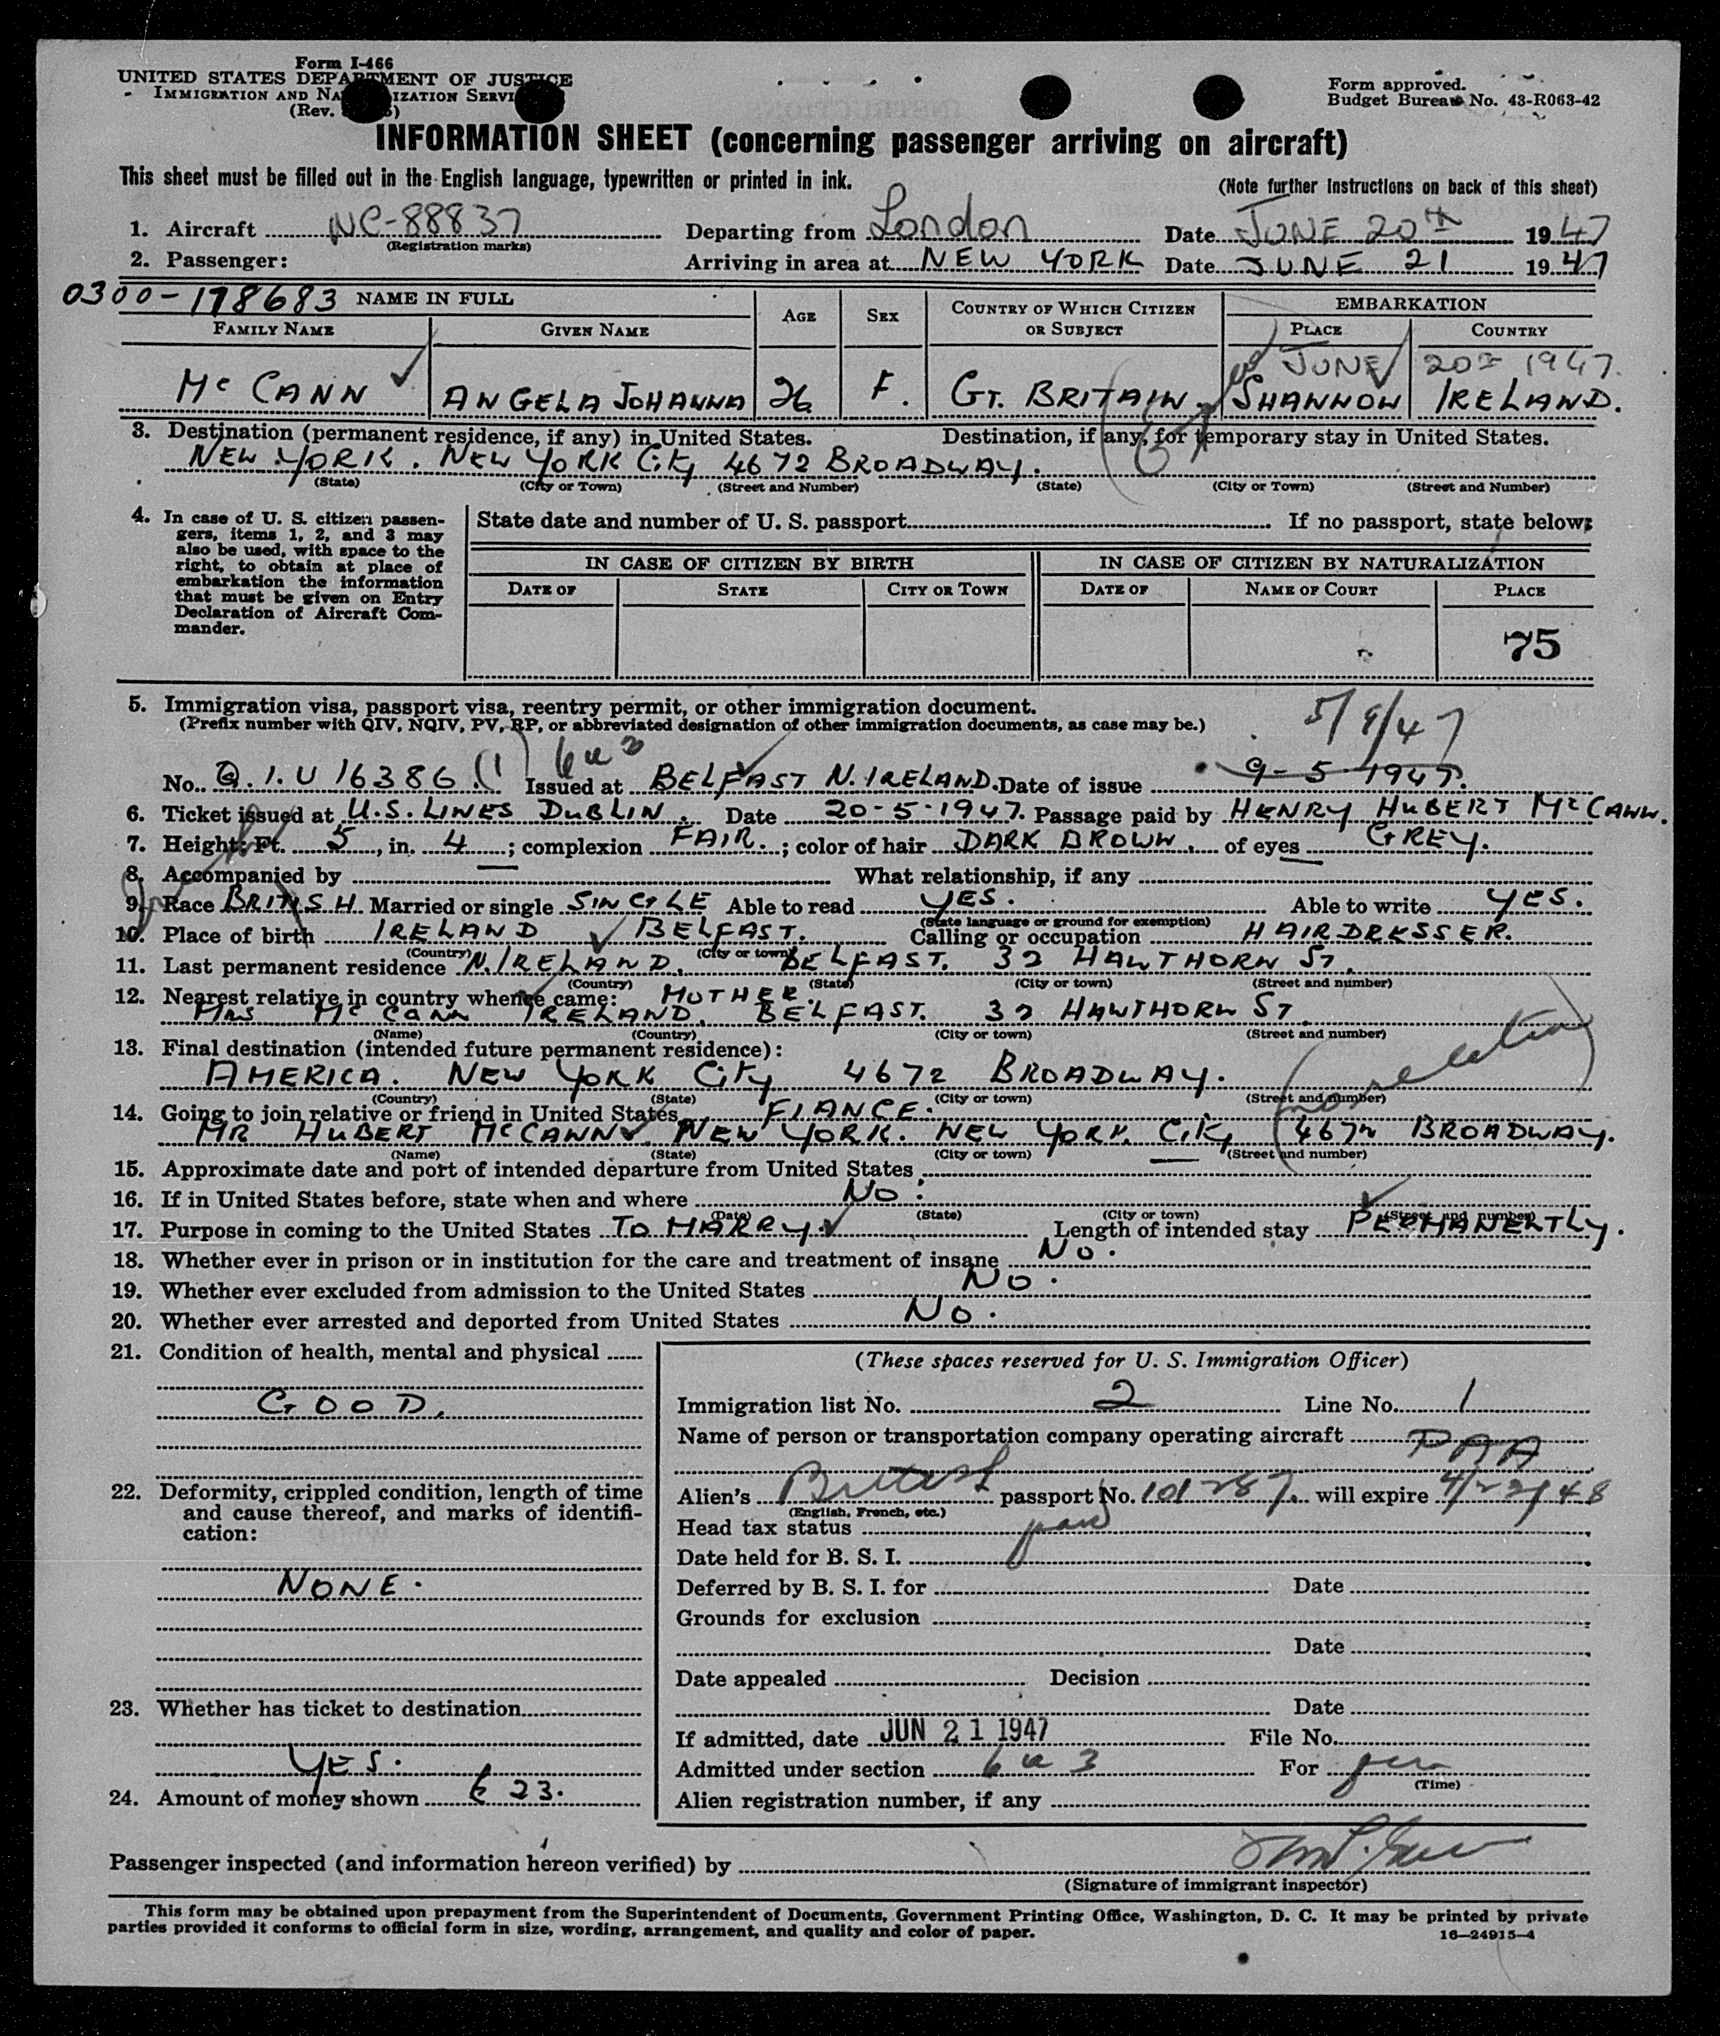 Form I-466
UNITED STATES DEPARTMENT OF JUSTICE
IMMIGRATION AND NATURALIZATION SERVICE
(Rev.
Form approved.
Budget Bureau No. 43-R063-42
INFORMATION SHEET (concerning passenger arriving on aircraft)
This sheet must be filled out in the English language, typewritten or printed in ink.
(Note further instructions on back of this sheet)
1. Aircraft NC-88837 Departing from London Date JUNE 20th 1947
(Registration marks)
2. Passenger: Arriving in area at NEW YORK Date JUNE 21 1947
0300-178683 NAME IN FULL AGE SEX COUNTRY OF WHICH CITIZEN OR SUBJECT EMBARKATION
FAMILY NAME GIVEN NAME PLACE COUNTRY
JUNE 20th 1947.
McCANN ANGELA JOHANNA 26 F. GT. BRITAIN. SHANNON IRELAND.
3. Destination (permanent residence, if any) in United States. Destination, if any, for temporary stay in United States.
NEW YORK. NEW YORK City 4672 BROADWAY.
(State) (City or Town) (Street and Number) (State) (City or Town) (Street and Number)
4. In case of U. S. citizen passengers, items 1, 2, and 3 may
also be used, with space to the
right, to obtain at place of
embarkation the information
that must be given on Entry
Declaration of Aircraft Commander.
State date and number of U. S. passport If no passport, state below:
IN CASE OF CITIZEN BY BIRTH IN CASE OF CITIZEN BY NATURALIZATION
DATE OF STATE CITY OR TOWN DATE OF NAME OF COURT PLACE
75
5. Immigration visa, passport visa, reentry permit, or other immigration document.
(Prefix number with QIV, NQIV, PV, RP, or abbreviated designation of other immigration documents, as case may be.)
5/9/47
6 a 3
No. Q.I.U 16386 Issued at BELFAST N. IRELAND. Date of issue 9-5-1947.
6. Ticket issued at U.S. LINES DUBLIN. Date 20-5-1947. Passage paid by HENRY HUBERT McCANN.
7. Height: Ft. 5, in. 4; complexion FAIR.; color of hair DARK BROWN. of eyes GREY.
8. Accompanied by What relationship, if any
9. Race BRITISH Married or single SINGLE Able to read YES. Able to write YES.
(State language or ground for exemption)
10. Place of birth IRELAND BELFAST. Calling or occupation HAIRDRESSER.
(Country) (City or town)
11. Last permanent residence N. IRELAND. BELFAST. 32 HAWTHORN ST.
(Country) (State) (City or town) (Street and number)
12. Nearest relative in country whence came: MOTHER.
MRS McCANN IRELAND. BELFAST. 32 HAWTHORN ST.
(Name) (Country) (City or town) (Street and number)
13. Final destination (intended future permanent residence):
AMERICA. NEW YORK City 4672 BROADWAY.
(Country) (State) (City or town) (Street and number)
no relation
14. Going to join relative or friend in United States FIANCE.
MR HUBERT McCANN. NEW YORK. NEW YORK. City 4672 BROADWAY.
(Name) (State) (City or town) (Street and number)
15. Approximate date and port of intended departure from United States
16. If in United States before, state when and where NO.
(Date) (State) (City or town) (Street and number)
17. Purpose in coming to the United States TO MARRY. Length of intended stay PERMANENTLY.
18. Whether ever in prison or in institution for the care and treatment of insane NO.
19. Whether ever excluded from admission to the United States NO.
20. Whether ever arrested and deported from United States NO.
21. Condition of health, mental and physical
GOOD.
22. Deformity, crippled condition, length of time
and cause thereof, and marks of identification:
NONE.
23. Whether has ticket to destination
YES.
24. Amount of money shown £ 23.
(These spaces reserved for U. S. Immigration Officer)
Immigration list No. 2 Line No. 1
Name of person or transportation company operating aircraft PAA
Alien's British passport No. 101287. will expire 4/22/48
(English, French, etc.)
Head tax status paid
Date held for B. S. I.
Deferred by B. S. I. for Date
Grounds for exclusion
Date
Date appealed Decision
Date
If admitted, date JUN 21 1947 File No.
Admitted under section 6 a 3 For per
(Time)
Alien registration number, if any
Passenger inspected (and information hereon verified) by
(Signature of immigrant inspector)
This form may be obtained upon prepayment from the Superintendent of Documents, Government Printing Office, Washington, D. C. It may be printed by private
parties provided it conforms to official form in size, wording, arrangement, and quality and color of paper.
16—24915-4